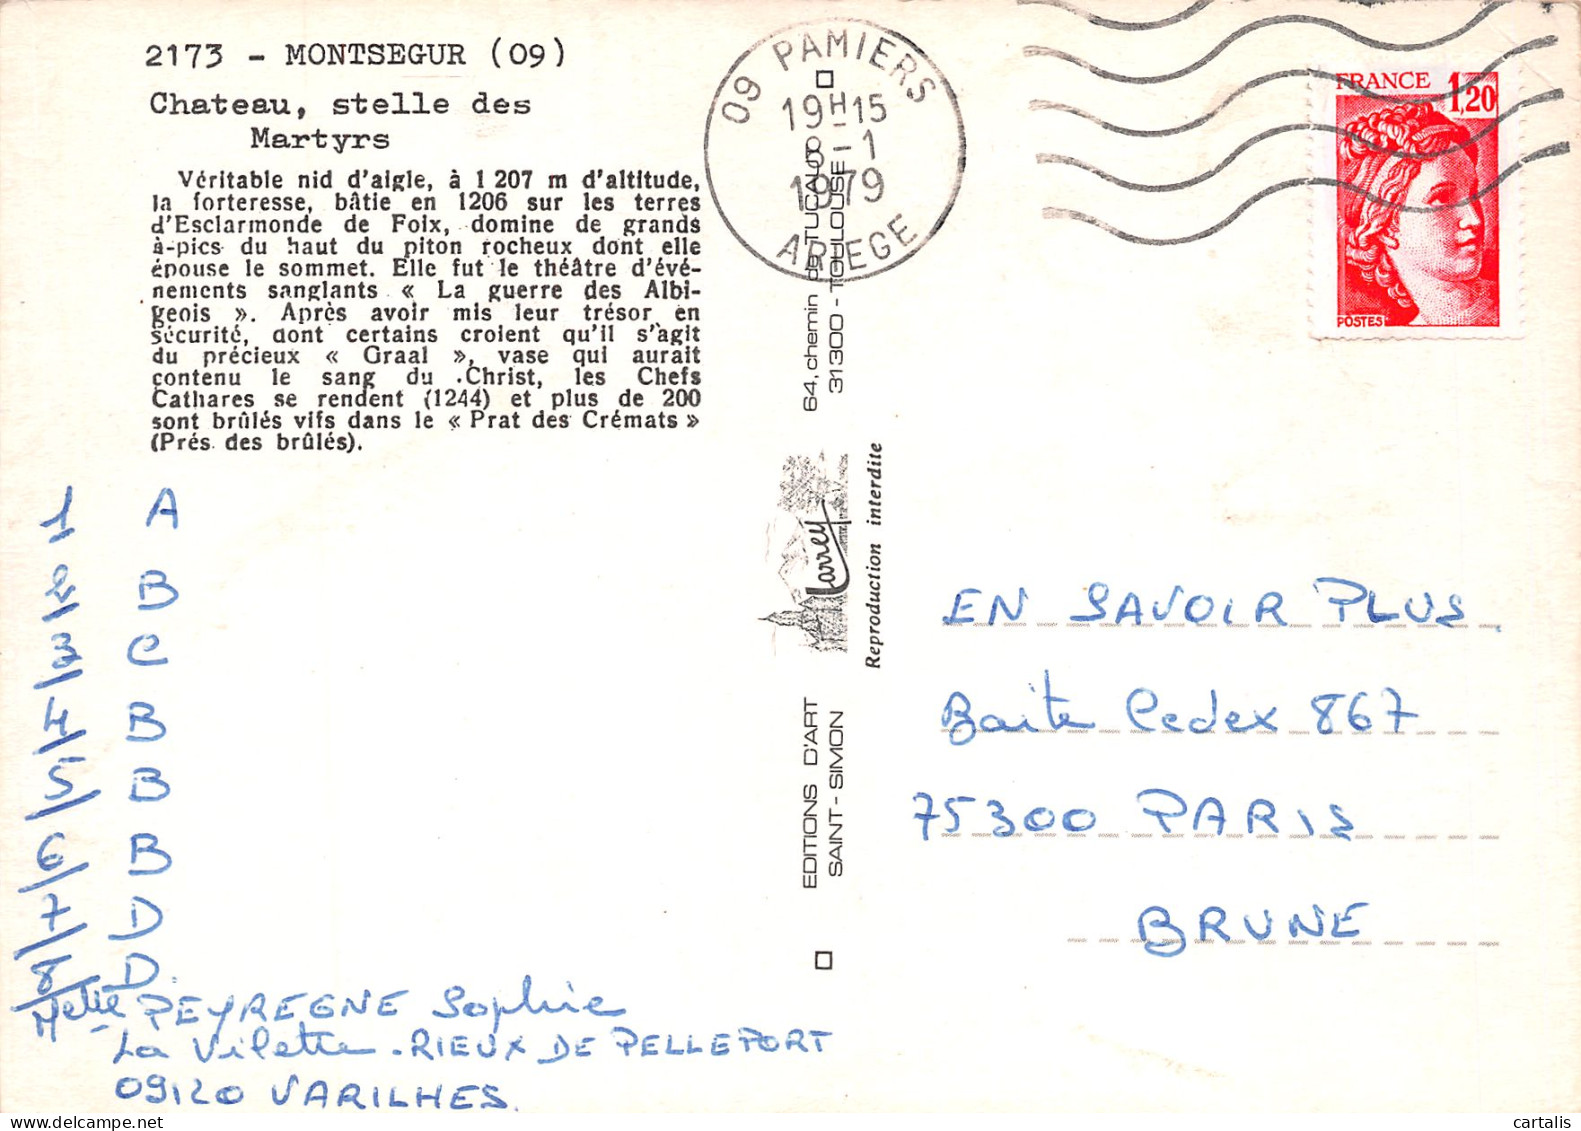 2173 - MONTSEGUR (09)
Chateau, stelle des
Martyrs
Véritable nid d'aigle, à 1 207 m d'altitude,
la forteresse, bâtie en 1206 sur les terres
d'Esclarmonde de Foix, domine de grands
à-pics du haut du piton rocheux dont elle
épouse le sommet. Elle fut le théâtre d'évé-
nements sanglants « La guerre des Albi-
geois ». Après avoir mis leur trésor en
sécurité, dont certains croient qu'il s'agit
du précieux « Graal », vase qui aurait
contenu le sang du Christ, les Chefs
Cathares se rendent (1244) et plus de 200
sont brûlés vifs dans le « Prat des Crémats »
(Prés des brûlés).
1 A
2 B
3 C
4 B
5 B
6 B
7 D
8 D.
Melle PEYREGNE Sophie
La Vilette. RIEUX DE PELLEPORT
09120 VARILHES.
09 PAMIERS
19H15
8-1
1979
ARIEGE
64, chemin de TUCAUT
31300 - TOULOUSE
Larrey
Reproduction interdite
EDITIONS D'ART
SAINT-SIMON
FRANCE 1,20
POSTES
EN SAVOIR PLUS.
Boite Cedex 867
75300 PARIS
BRUNE
cartalis